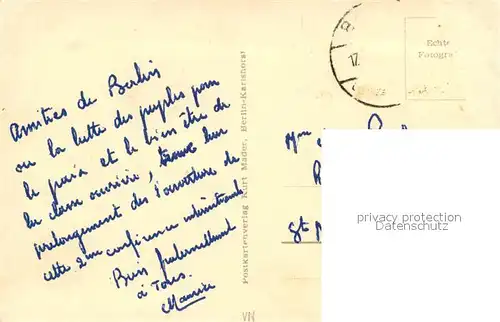 Amitiés de Berlin
ou la lutte des peuples pour
la paix et le bien être de
la classe ouvrière, trouve leur
prolongement dès l'ouverture de
cette 2ème conférence
Bien fraternellement
à tous.
Maurice
Postkartenverlag Kurt Mader, Berlin-Karlshorst
VIII
17
Echte
Fotogra
Mme
privacy protection
www.oldthing.de